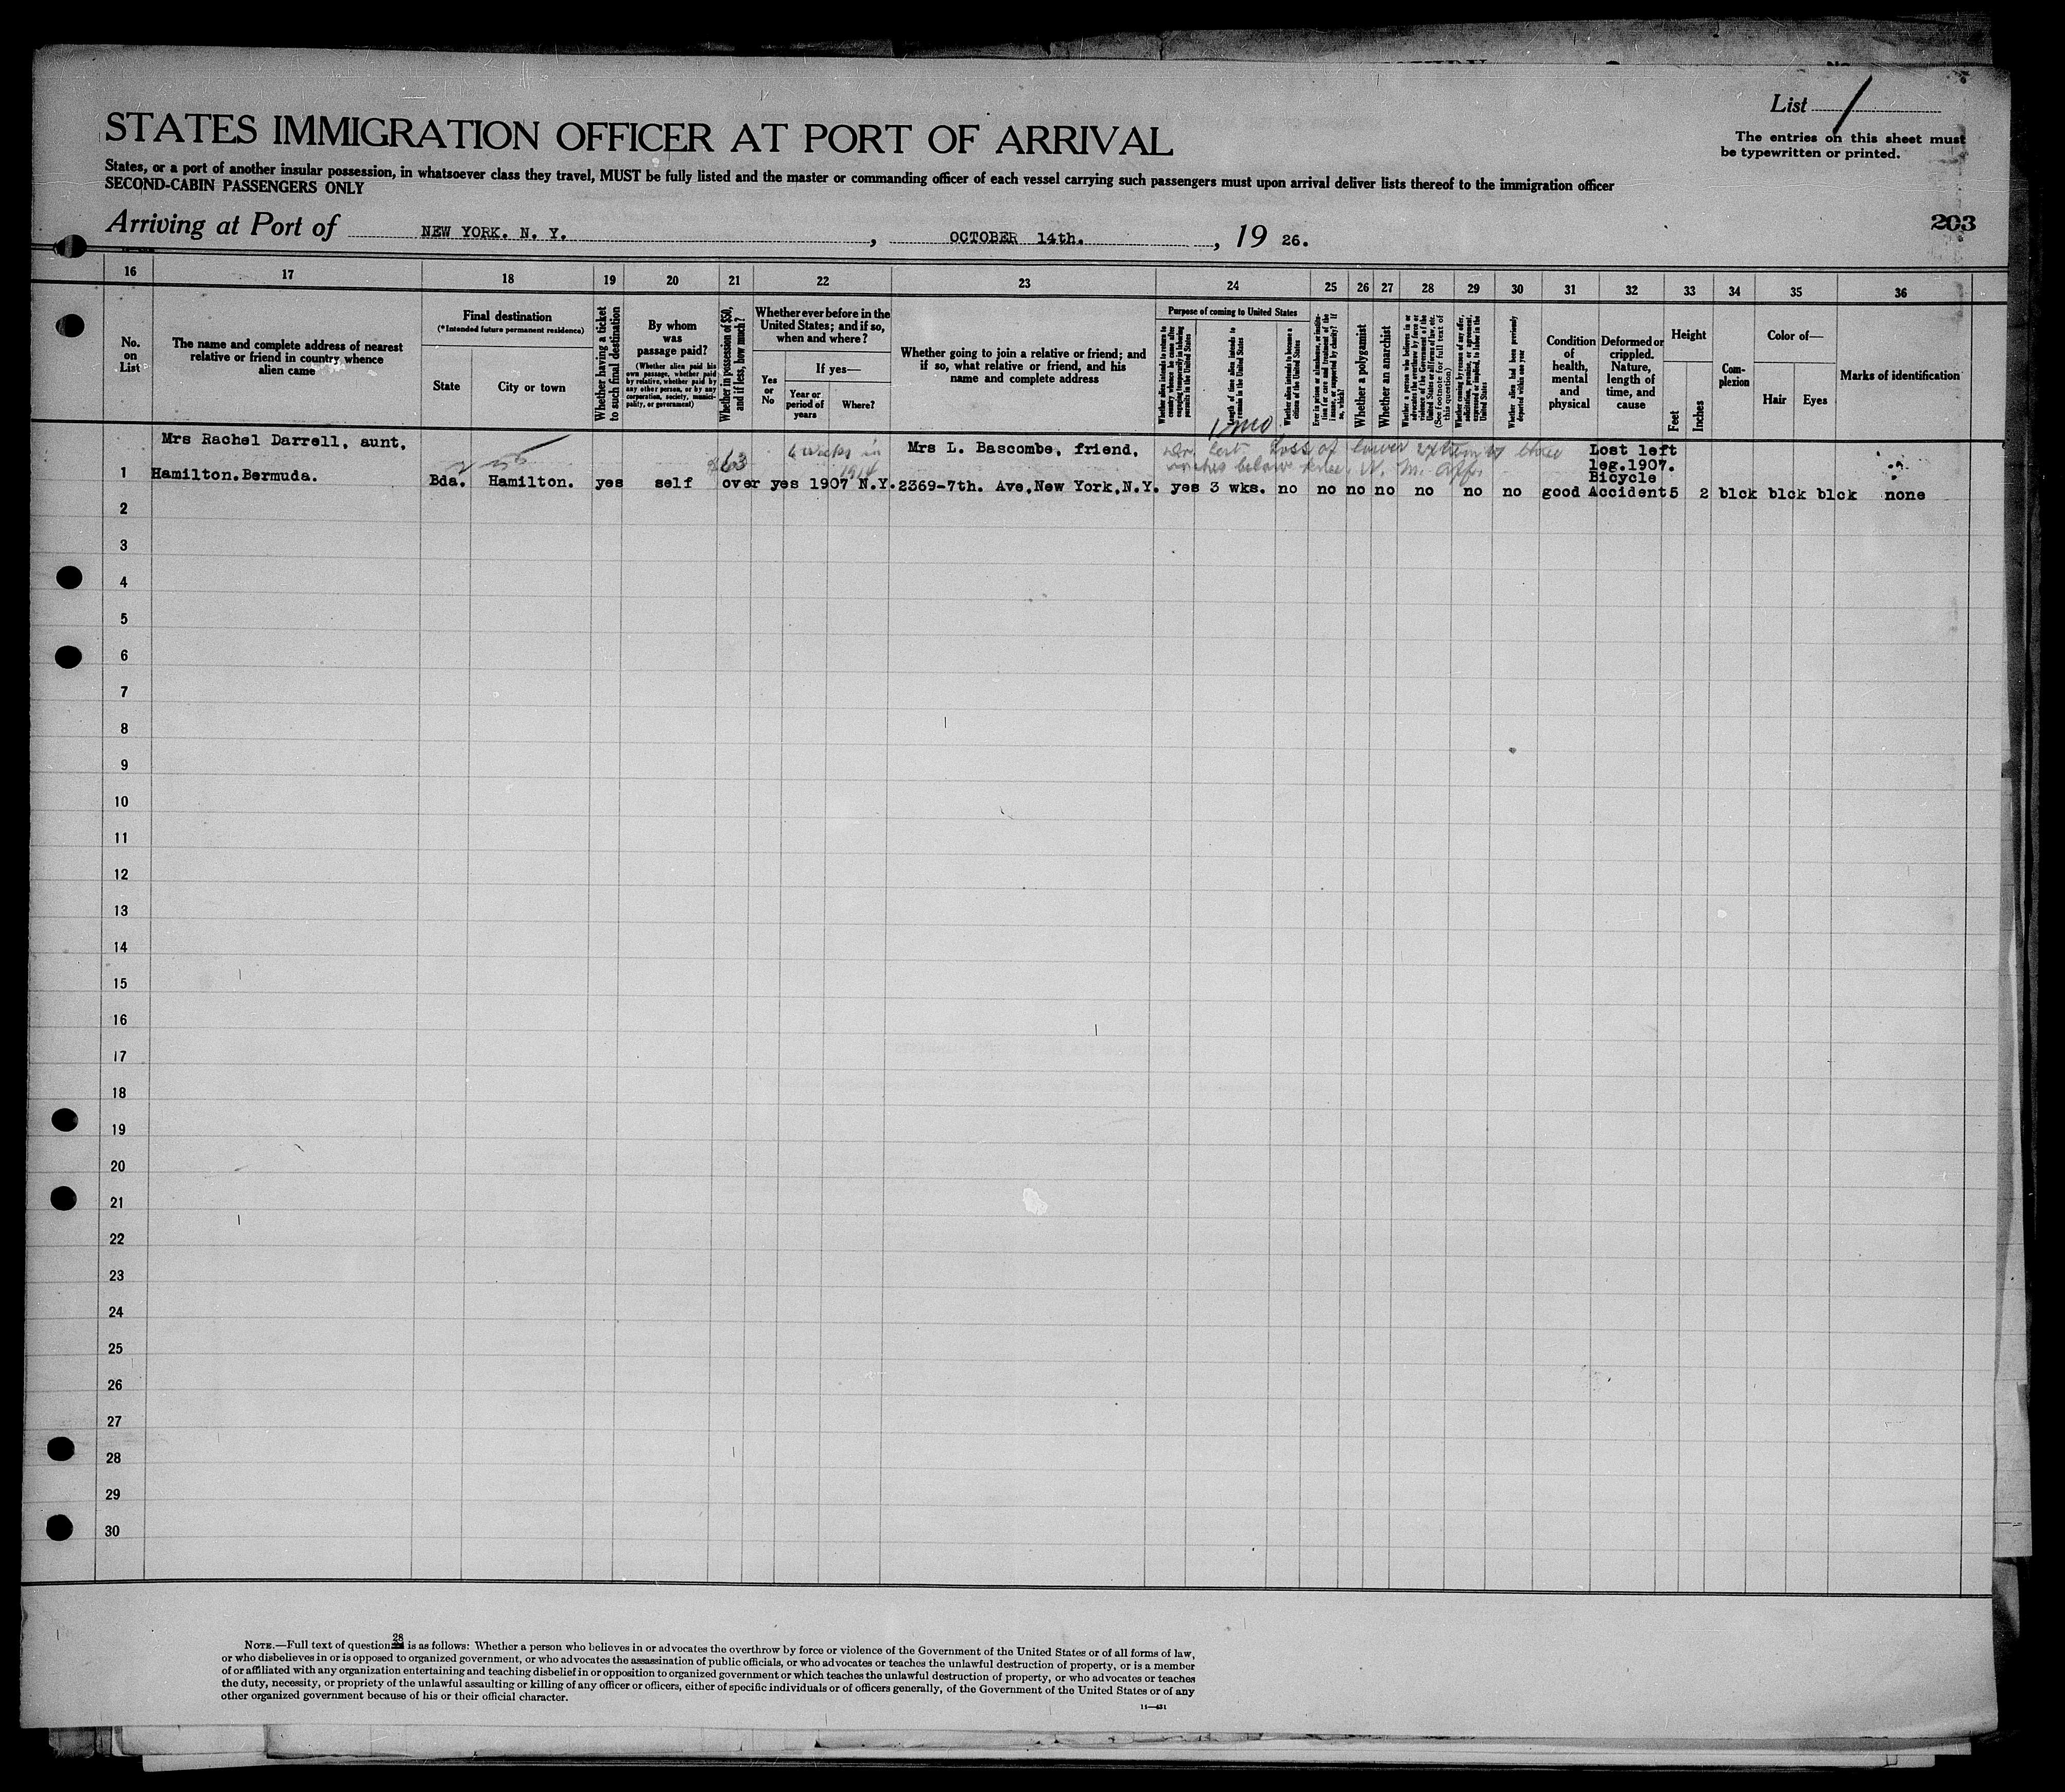 List 1
The entries on this sheet must
be typewritten or printed.
STATES IMMIGRATION OFFICER AT PORT OF ARRIVAL
States, or a port of another insular possession, in whatsoever class they travel, MUST be fully listed and the master or commanding officer of each vessel carrying such passengers must upon arrival deliver lists thereof to the immigration officer
SECOND-CABIN PASSENGERS ONLY
Arriving at Port of NEW YORK. N. Y. , OCTOBER 14th. , 19 26.
203
16 17 18 19 20 21 22 23 24 25 26 27 28 29 30 31 32 33 34 35 36
No.
on
List
The name and complete address of nearest
relative or friend in country whence
alien came
Final destination
(*Intended future permanent residence)
State
City or town
Whether having a ticket
to such final destination
By whom
was
passage paid?
(Whether alien paid his
own passage, whether paid
by relative, whether paid by
any other person, or by any
corporation, society, munici-
pality, or government)
Whether in possession of $50,
and if less, how much?
Whether ever before in the
United States; and if so,
when and where?
Yes
or
No
If yes—
Year or
period of
years
Where?
Whether going to join a relative or friend; and
if so, what relative or friend, and his
name and complete address
Purpose of coming to United States
Whether alien intends to return to
country whence he came after
engaging temporarily in laboring
pursuits in the United States
Length of time alien intends to
remain in the United States
Whether alien intends to become a
citizen of the United States
Ever in prison or almshouse, or institu-
tion for care and treatment of the
insane, or supported by charity? If
so, which?
Whether a polygamist
Whether an anarchist
Whether a person who believes in or
advocates the overthrow by force or
violence of the Government of the
United States or all forms of law, etc.
(See footnote for full text of
this question)
Whether coming by reason of any offer,
solicitation, promise, or agreement,
expressed or implied, to labor in the
United States
Whether alien had been previously
deported within one year
Condition
of
health,
mental
and
physical
Deformed or
crippled.
Nature,
length of
time, and
cause
Height
Feet
Inches
Com-
plexion
Color of—
Hair
Eyes
Marks of identification
1 mo
Mrs Rachel Darrell, aunt,
Hamilton.Bermuda.
$63
6 weeks in
1914
Mrs L. Bascombe, friend,
Dr. Cert Loss of lower extremity three
inches below knee. N. M. Aff.
Lost left
leg.1907.
Bicycle
1 Bda. Hamilton. yes self over yes 1907 N.Y. 2369-7th. Ave,New York,N.Y. yes 3 wks. no no no no no no no good Accident 5 2 blck blck blck none
2
3
4
5
6
7
8
9
10
11
12
13
14
15
16
17
18
19
20
21
22
23
24
25
26
27
28
29
30
28
NOTE.—Full text of question is as follows: Whether a person who believes in or advocates the overthrow by force or violence of the Government of the United States or of all forms of law,
or who disbelieves in or is opposed to organized government, or who advocates the assassination of public officials, or who advocates or teaches the unlawful destruction of property, or is a member
of or affiliated with any organization entertaining and teaching disbelief in or opposition to organized government or which teaches the unlawful destruction of property, or who advocates or teaches
the duty, necessity, or propriety of the unlawful assaulting or killing of any officer or officers, either of specific individuals or of officers generally, of the Government of the United States or of any
other organized government because of his or their official character.